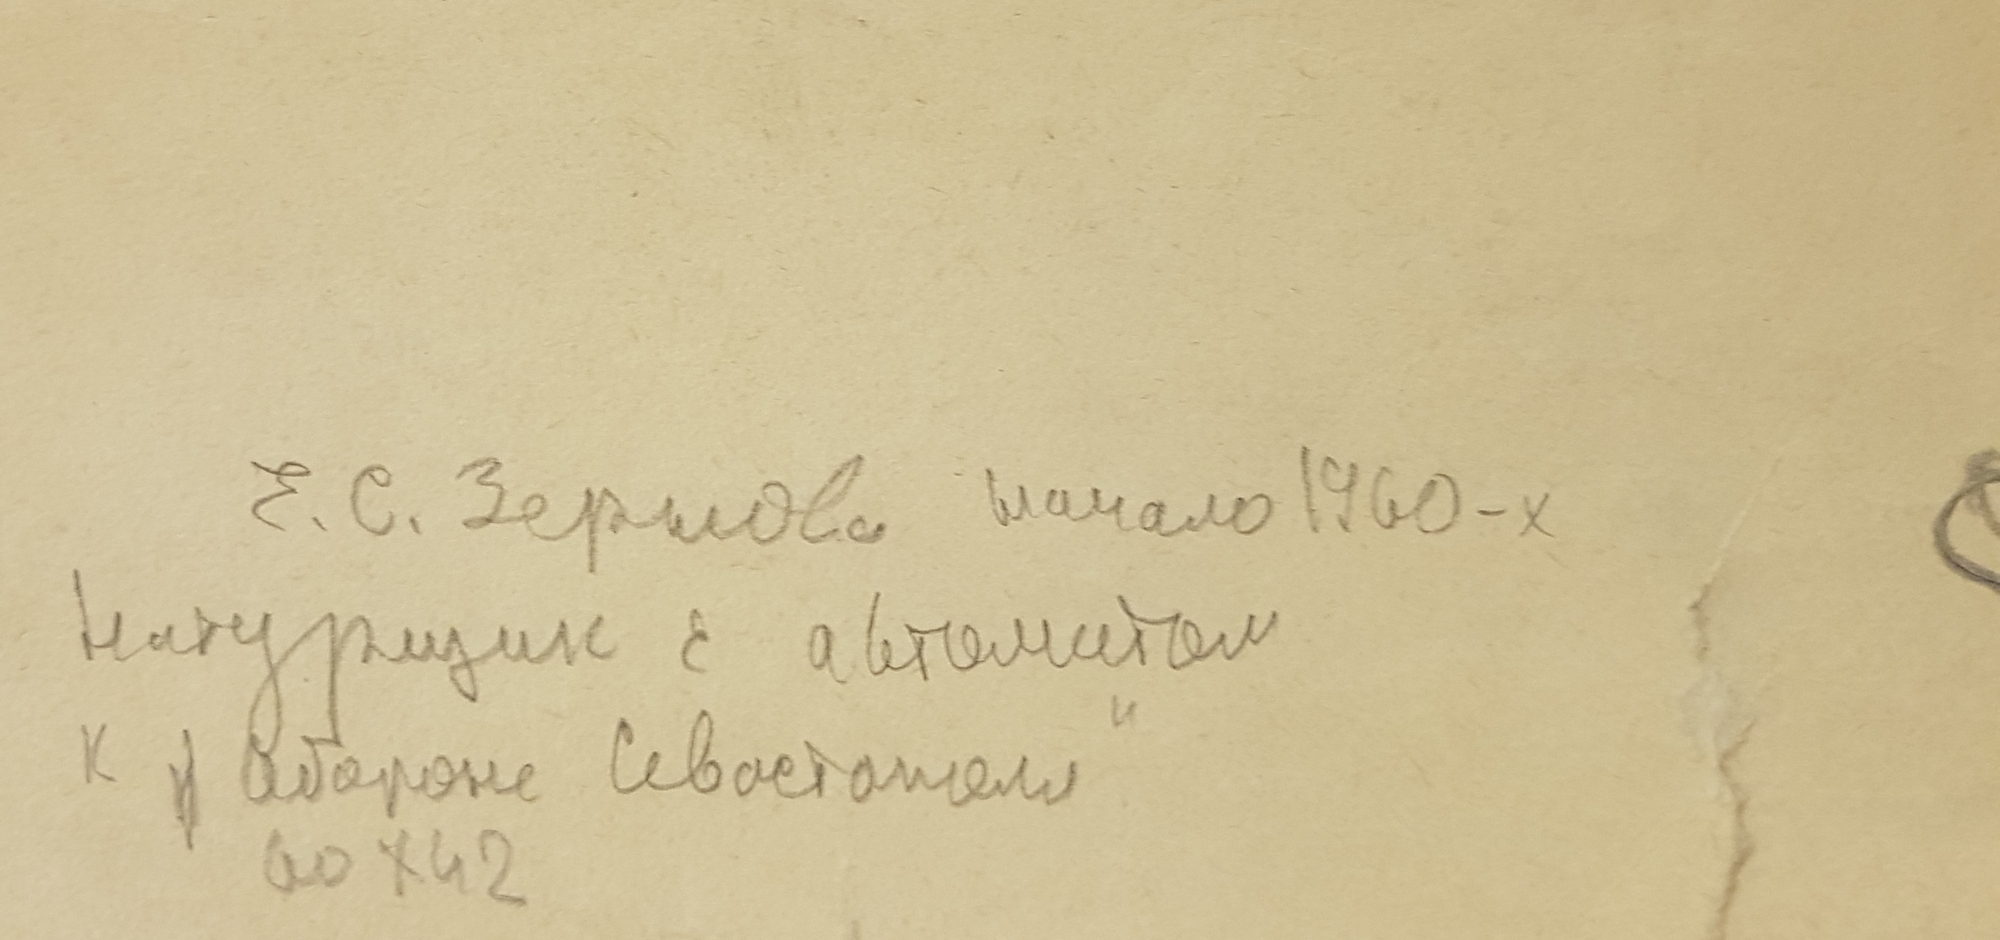 Е.С. Зернова начало 1960-х
Натурщик с автоматом
к Обороне Севастополя"
60х42